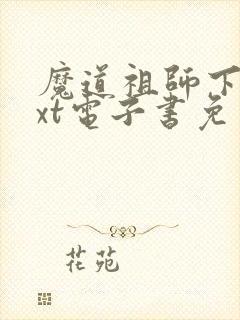 魔道祖師下
xt電子書免
花苑